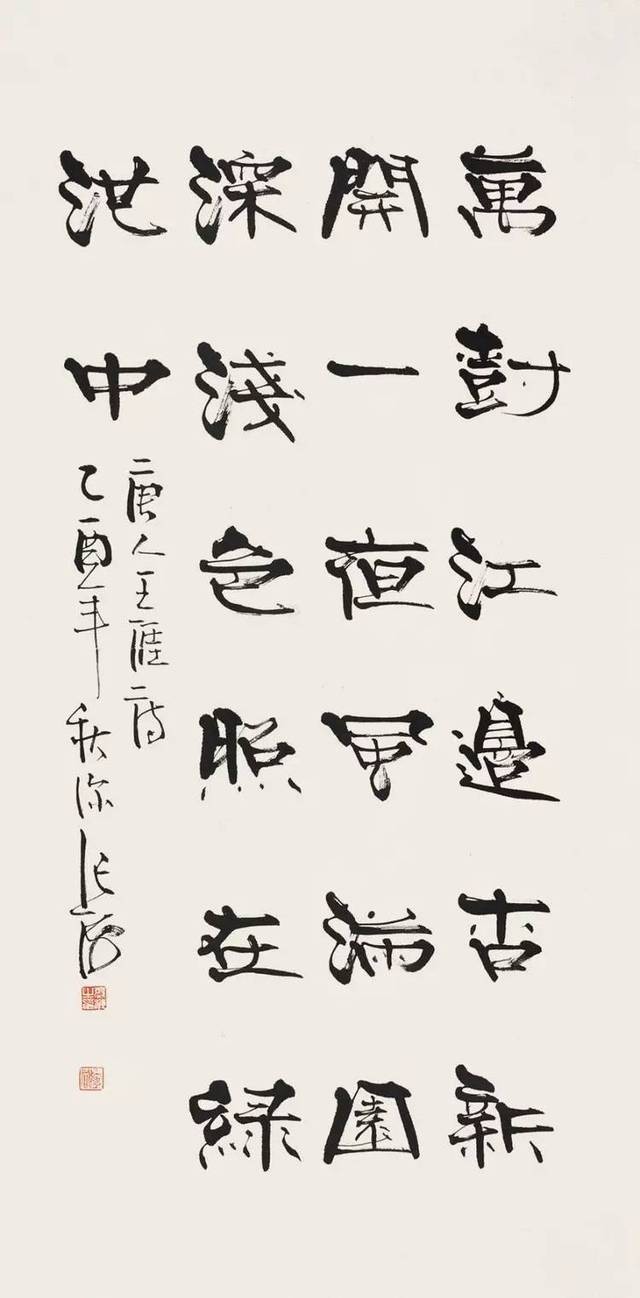 萬樹江邊杏新
開一夜風滿園
深淺色照在綠
池中
唐人王涯詩
乙酉年秋深張海